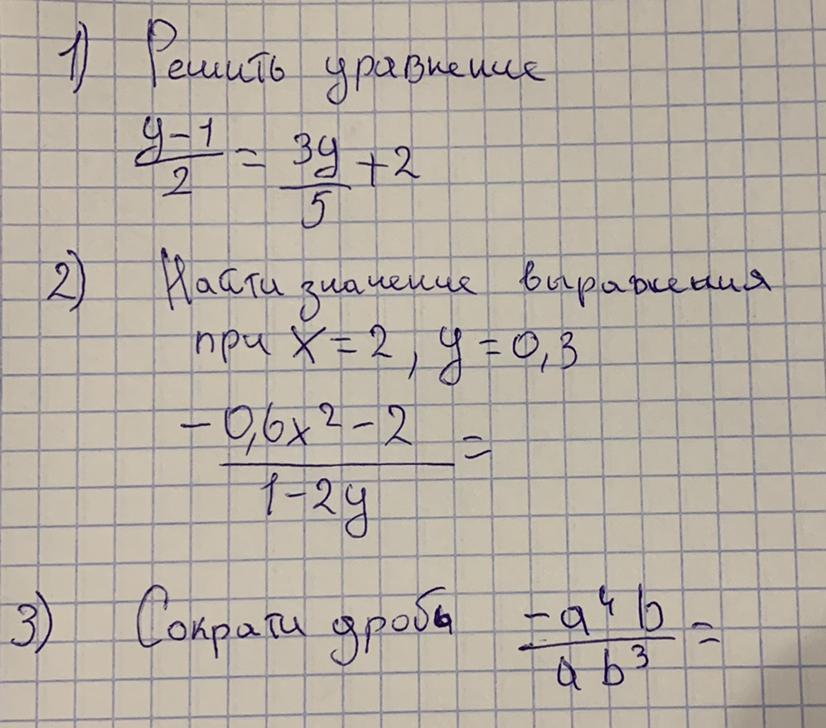 1) Решить уравнение
(y-1)/2 = 3y/5 + 2
2) Найти значение выражения
при x = 2, y = 0,3
(-0,6x² - 2)/(1 - 2y) =
3) Сократи дробь (-a⁴b)/(ab³) =